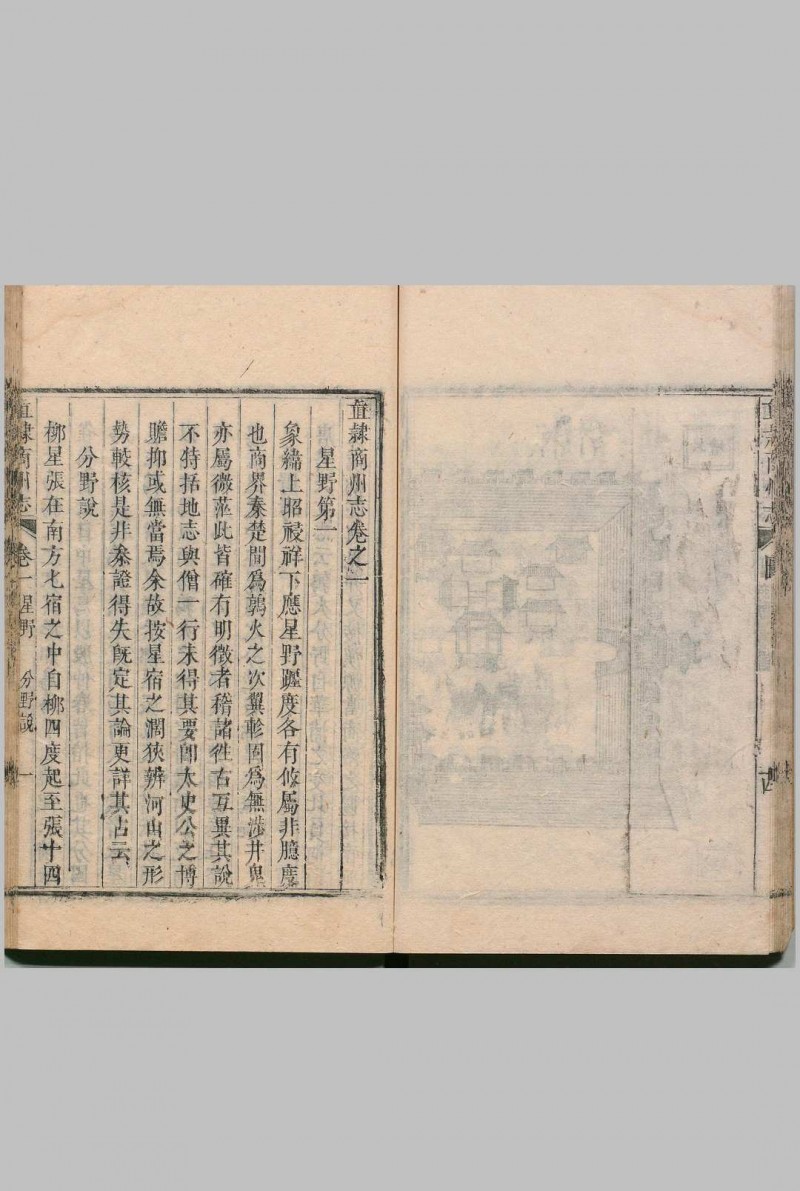 直隸商州志卷之一
星野第一
象緯上昭祲祥下應星野躔度各有攸屬非臆度
也商界秦楚間爲鶉火之次翼軫固爲無涉井鬼
亦屬微茫此皆確有明徵者稽諸徃古互異其說
不特括地志與僧一行未得其要卽太史公之博
贍抑或無當焉余故按星宿之濶狹辨河山之形
勢較核是非叅證得失旣定其論更詳其占云
分野說
柳星張在南方七宿之中自柳四度起至張十四
直隸商州志 卷一 星野 分野說 一